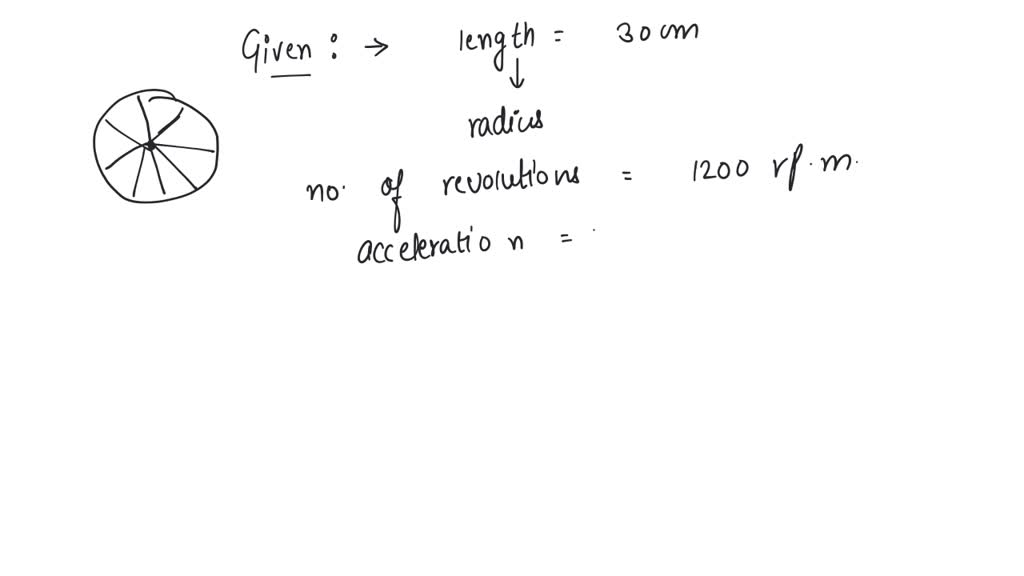 Given : → length = 30 cm
↓
radius
no. of revolutions = 1200 r.p.m.
acceleration =